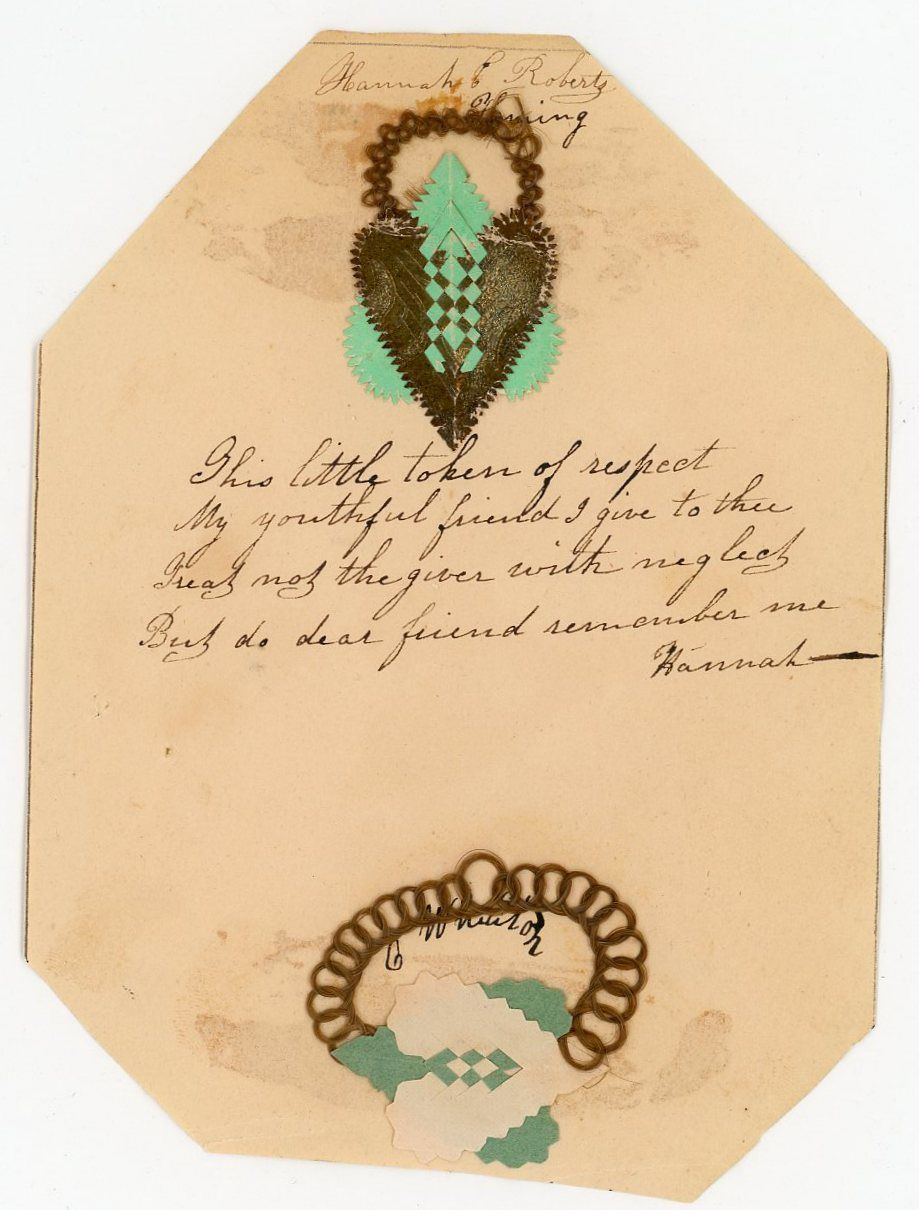 Hannah C Roberts
This little token of respect
My youthful friend I give to thee
Treat not the giver with neglect
But do dear friend remember me
Hannah
C